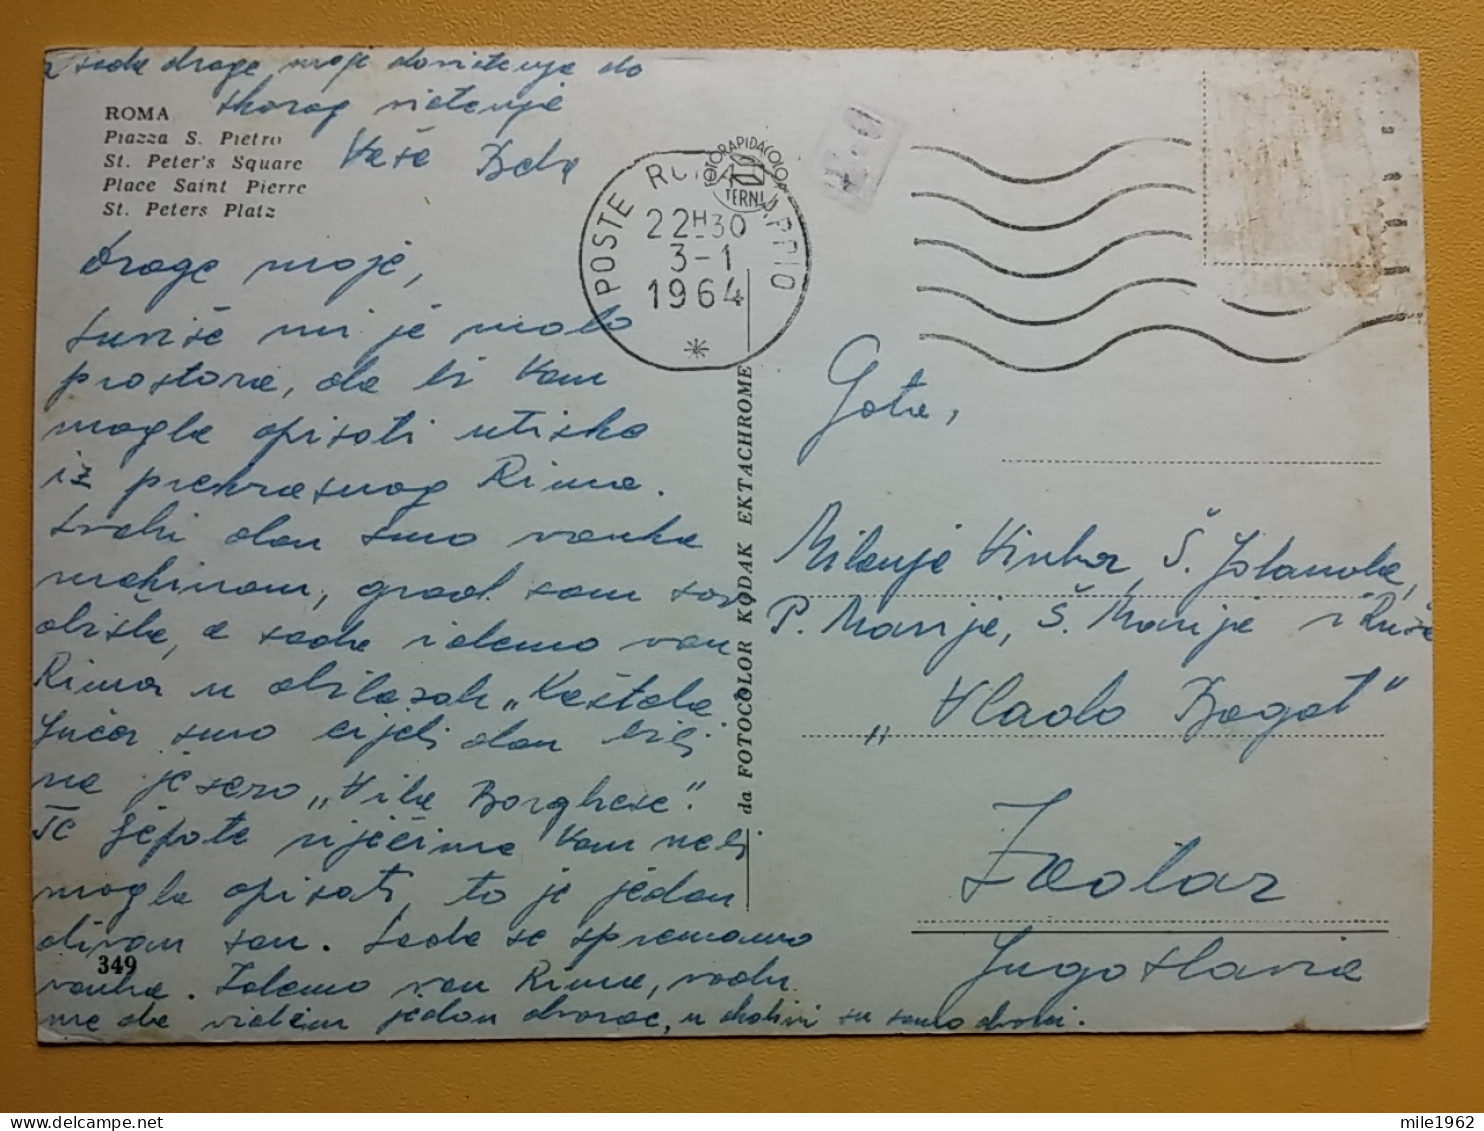 sada drage moje doviđenja do
skorog viđenja
Vaša Beba
ROMA
Piazza S. Pietro
St. Peter's Square
Place Saint Pierre
St. Peters Platz
POSTE ROMA APPIO
22H30
3-1
1964
FOTORAPIDACOLOR
TERNI
Drage moje,
Suviše mi je malo
prostora, da bi Vam
mogla opisati utiske
iz prekrasnog Rima.
Svaki dan smo vanka
mašinom, grad sam sav
obišla, a sada idemo van
Rima u obilazak „Kaštela
Jučer smo cijeli dan bili
na jezero „Vila Borghese".
Te ljepote riječima Vam nebi
mogla opisati, to je jedan
divan san. Sada se spremamo
vanka. Idemo van Rima, vodu
me da vidim jedan dvorac, u okolini su samo dvorci.
349
da FOTOCOLOR KODAK EKTACHROME
Milanja Vinka, Š. Jolanda,
P. Marija, Š. Marija i Ruža
„Vlado Bagat"
Zadar
Jugoslavia
mile1962